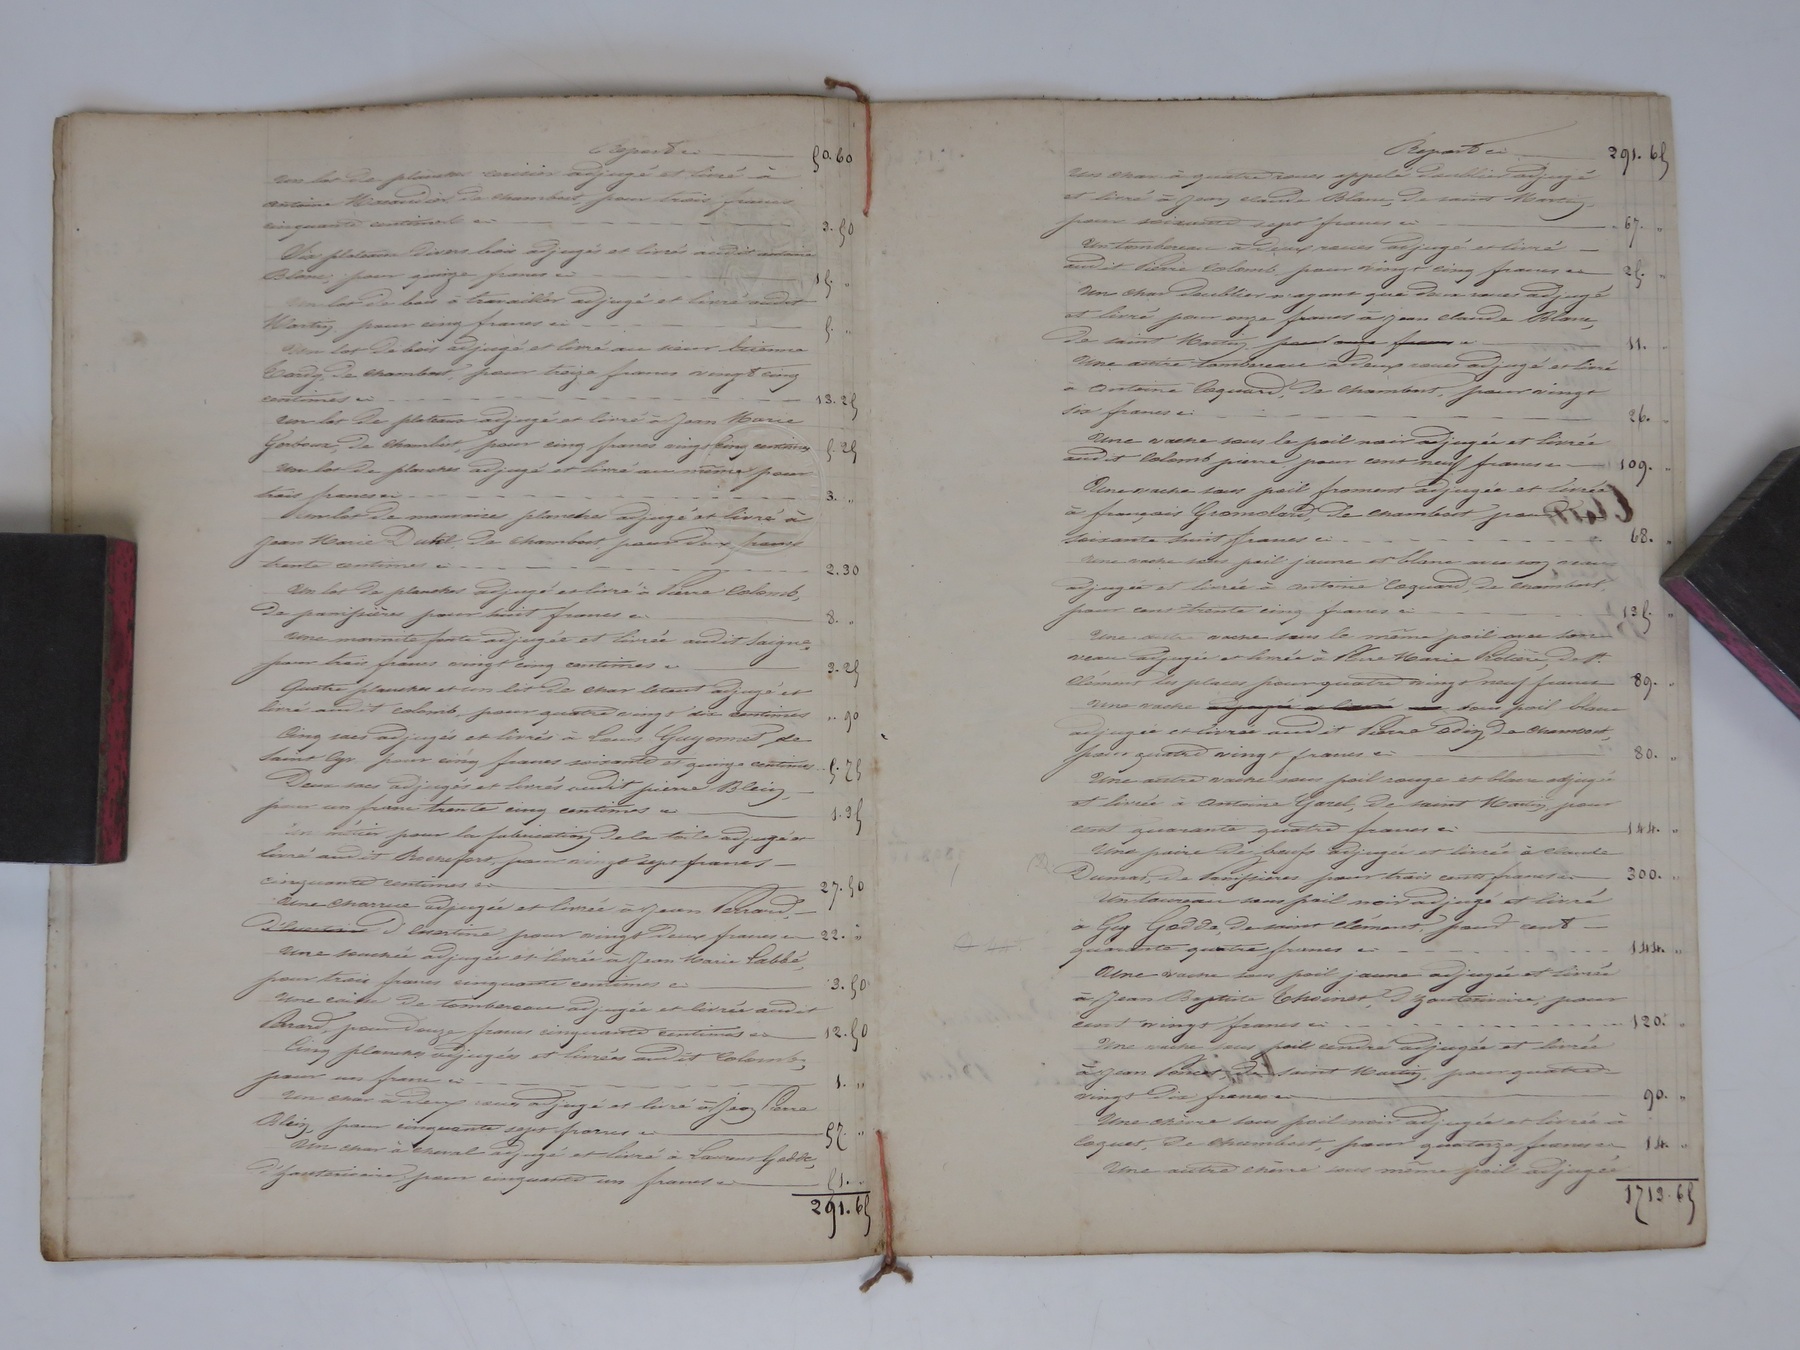 Report 50.60
Un lot de planches cerisier adjugé et livré à
antoine de chambost, pour trois francs
cinquante centimes 3.50
Dix plateaux divers bois adjugés et livrés audit antoine
Blanc, pour quinze francs 15. "
Un lot de bois à travailler adjugé et livré audit
Martin, pour cinq francs 5. "
Un lot de bois adjugé et livré au sieur Etienne
de chambost, pour treize francs vingt cinq
centimes 13.25
Un lot de plateaux adjugé et livré à Jean Marie
de chambost, pour cinq francs vingt cinq centimes 5.25
Un lot de planches adjugé et livré au même pour
trois francs 3. "
Un lot de mauvaises planches adjugé et livré à
Jean Marie Dutel, de chambost, pour deux francs
trente centimes 2.30
Un lot de planches adjugé et livré à Pierre Colomb,
de panissières pour huit francs 8. "
Une marmite fonte adjugée et livrée audit
pour trois francs vingt cinq centimes 3.25
Quatre planches et un lit de char adjugé et
livré audit Colomb, pour quatre vingt dix centimes ". 90
Cinq sacs adjugés et livrés à Louis Guyonnet de
Saint Cyr, pour cinq francs soixante et quinze centimes 5.75
Deux sacs adjugés et livrés audit pierre Blein,
pour un franc trente cinq centimes 1.35
Un métier pour la fabrication de la toile adjugé et
livré audit Rochefort, pour vingt sept francs
cinquante centimes 27.50
Une charrue adjugée et livrée à Jean Perrard,
d'Essertine pour vingt deux francs 22. "
Une adjugée et livrée à Jean Marie Labbé,
pour trois francs cinquante centimes 3.50
Une caisse de tombereau adjugée et livrée audit
Perrard, pour douze francs cinquante centimes 12.50
Cinq planches adjugées et livrées audit Colomb,
pour un franc 1. "
Un char à deux roues adjugé et livré à Jean Pierre
Blein, pour cinquante sept francs 57 "
Un char à cheval adjugé et livré à Laurent Gedde,
d'hauterivoire, pour cinquante un francs 51. "
291.65
Report 291.65
Un char à quatre roues appelé doublier adjugé
et livré à Jean claude Blanc, de saint Martin,
pour soixante sept francs 67. "
Un tombereau à deux roues adjugé et livré
audit Pierre Colomb, pour vingt cinq francs 25. "
Un char doublier n'ayant que deux roues adjugé
et livré pour onze francs à Jean claude Blanc,
de saint Martin, pour onze francs 11. "
Une autre tombereau à deux roues adjugé et livré
à Antoine Coquard, de chambost, pour vingt
six francs 26. "
Une vache sous le poil noir adjugée et livrée
audit Colomb pierre, pour cent neuf francs 109. "
Une vache sous poil froment adjugée et livrée
à françois de chambost pour
soixante huit francs 68. "
Une vache sous poil jaune et blanc avec son veau
adjugée et livrée à Antoine Coquard, de chambost,
pour cent trente cinq francs 135 "
Une autre vache sous le même poil avec son
veau adjugée et livrée à Pierre Marie de St.
Clément les places pour quatre vingt neuf francs 89. "
Une vache adjugée et livrée sous poil blanc
adjugée et livrée audit Pierre de chambost,
pour quatre vingt francs 80. "
Une autre vache sous poil rouge et blanc adjugée
et livrée à Antoine Garel, de saint Martin, pour
cent quarante quatre francs 144. "
Une paire de bœufs adjugée et livrée à claude
Dumas, de Panissières pour trois cents francs 300. "
Un taureau sous poil noir adjugé et livré
à Guy Gedde, de saint Clément, pour cent
quarante quatre francs 144. "
Une vache sous poil jaune adjugée et livrée
à Jean Baptiste Thoinet, d'hauterivoire, pour
cent vingt francs 120. "
Une vache sous poil cendré adjugée et livrée
à Jean de saint Martin, pour quatre
vingt dix francs 90. "
Une chèvre sous poil noir adjugée et livrée à
Coquet, de chambost, pour quatorze francs 14. "
Une autre chèvre sous même poil adjugée
1713.65